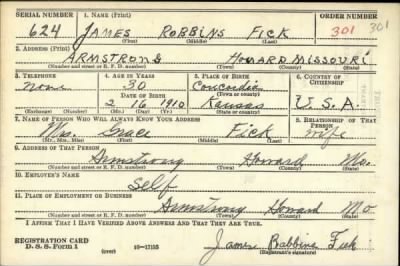 SERIAL NUMBER 1. NAME (Print) ORDER NUMBER
624 JAMES ROBBINS FICK 301 301
(First) (Middle) (Last)
2. ADDRESS (Print)
ARMSTRONG HOWARD MISSOURI
(Number and street or R. F. D. number) (Town) (County) (State)
3. TELEPHONE 4. AGE IN YEARS 5. PLACE OF BIRTH 6. COUNTRY OF CITIZENSHIP
None 30 Concordia
DATE OF BIRTH (Town or county)
2 16 1910 Kansas U.S.A.
(Exchange) (Number) (Mo.) (Day) (Yr.) (State or country)
7. NAME OF PERSON WHO WILL ALWAYS KNOW YOUR ADDRESS 8. RELATIONSHIP OF THAT PERSON
Mrs. Grace Fick wife
(Mr., Mrs., Miss) (First) (Middle) (Last)
9. ADDRESS OF THAT PERSON
Armstrong Howard Mo.
(Number and street or R. F. D. number) (Town) (County) (State)
10. EMPLOYER'S NAME
Self
11. PLACE OF EMPLOYMENT OR BUSINESS
Armstrong Howard Mo
(Number and street or R. F. D. number) (Town) (County) (State)
I AFFIRM THAT I HAVE VERIFIED ABOVE ANSWERS AND THAT THEY ARE TRUE.
REGISTRATION CARD James Robbins Fick
D. S. S. Form 1 (over) 16-17105 (Registrant's signature)